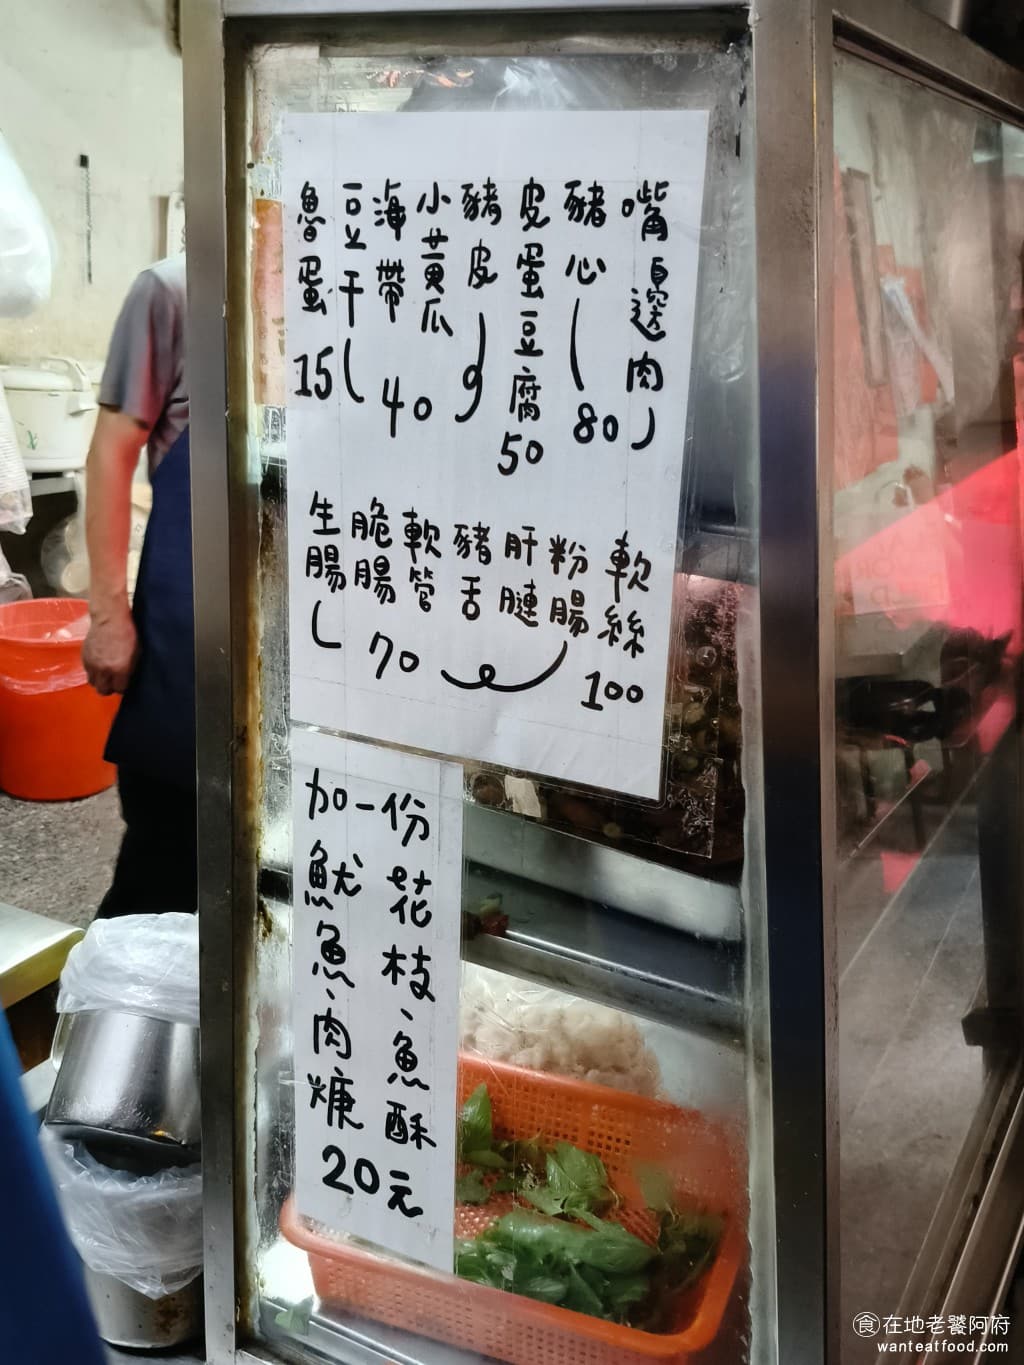 嘴邊肉
豬心
80
皮蛋豆腐
50
豬皮
小黃瓜
海帶
豆干
40
魚蛋
15
軟絲
100
粉腸
肝腱
豬舌
軟管
脆腸
生腸
70
加一份花枝、魚酥
魷魚、肉焿
20元
食在地老饕阿府
wanteatfood.com